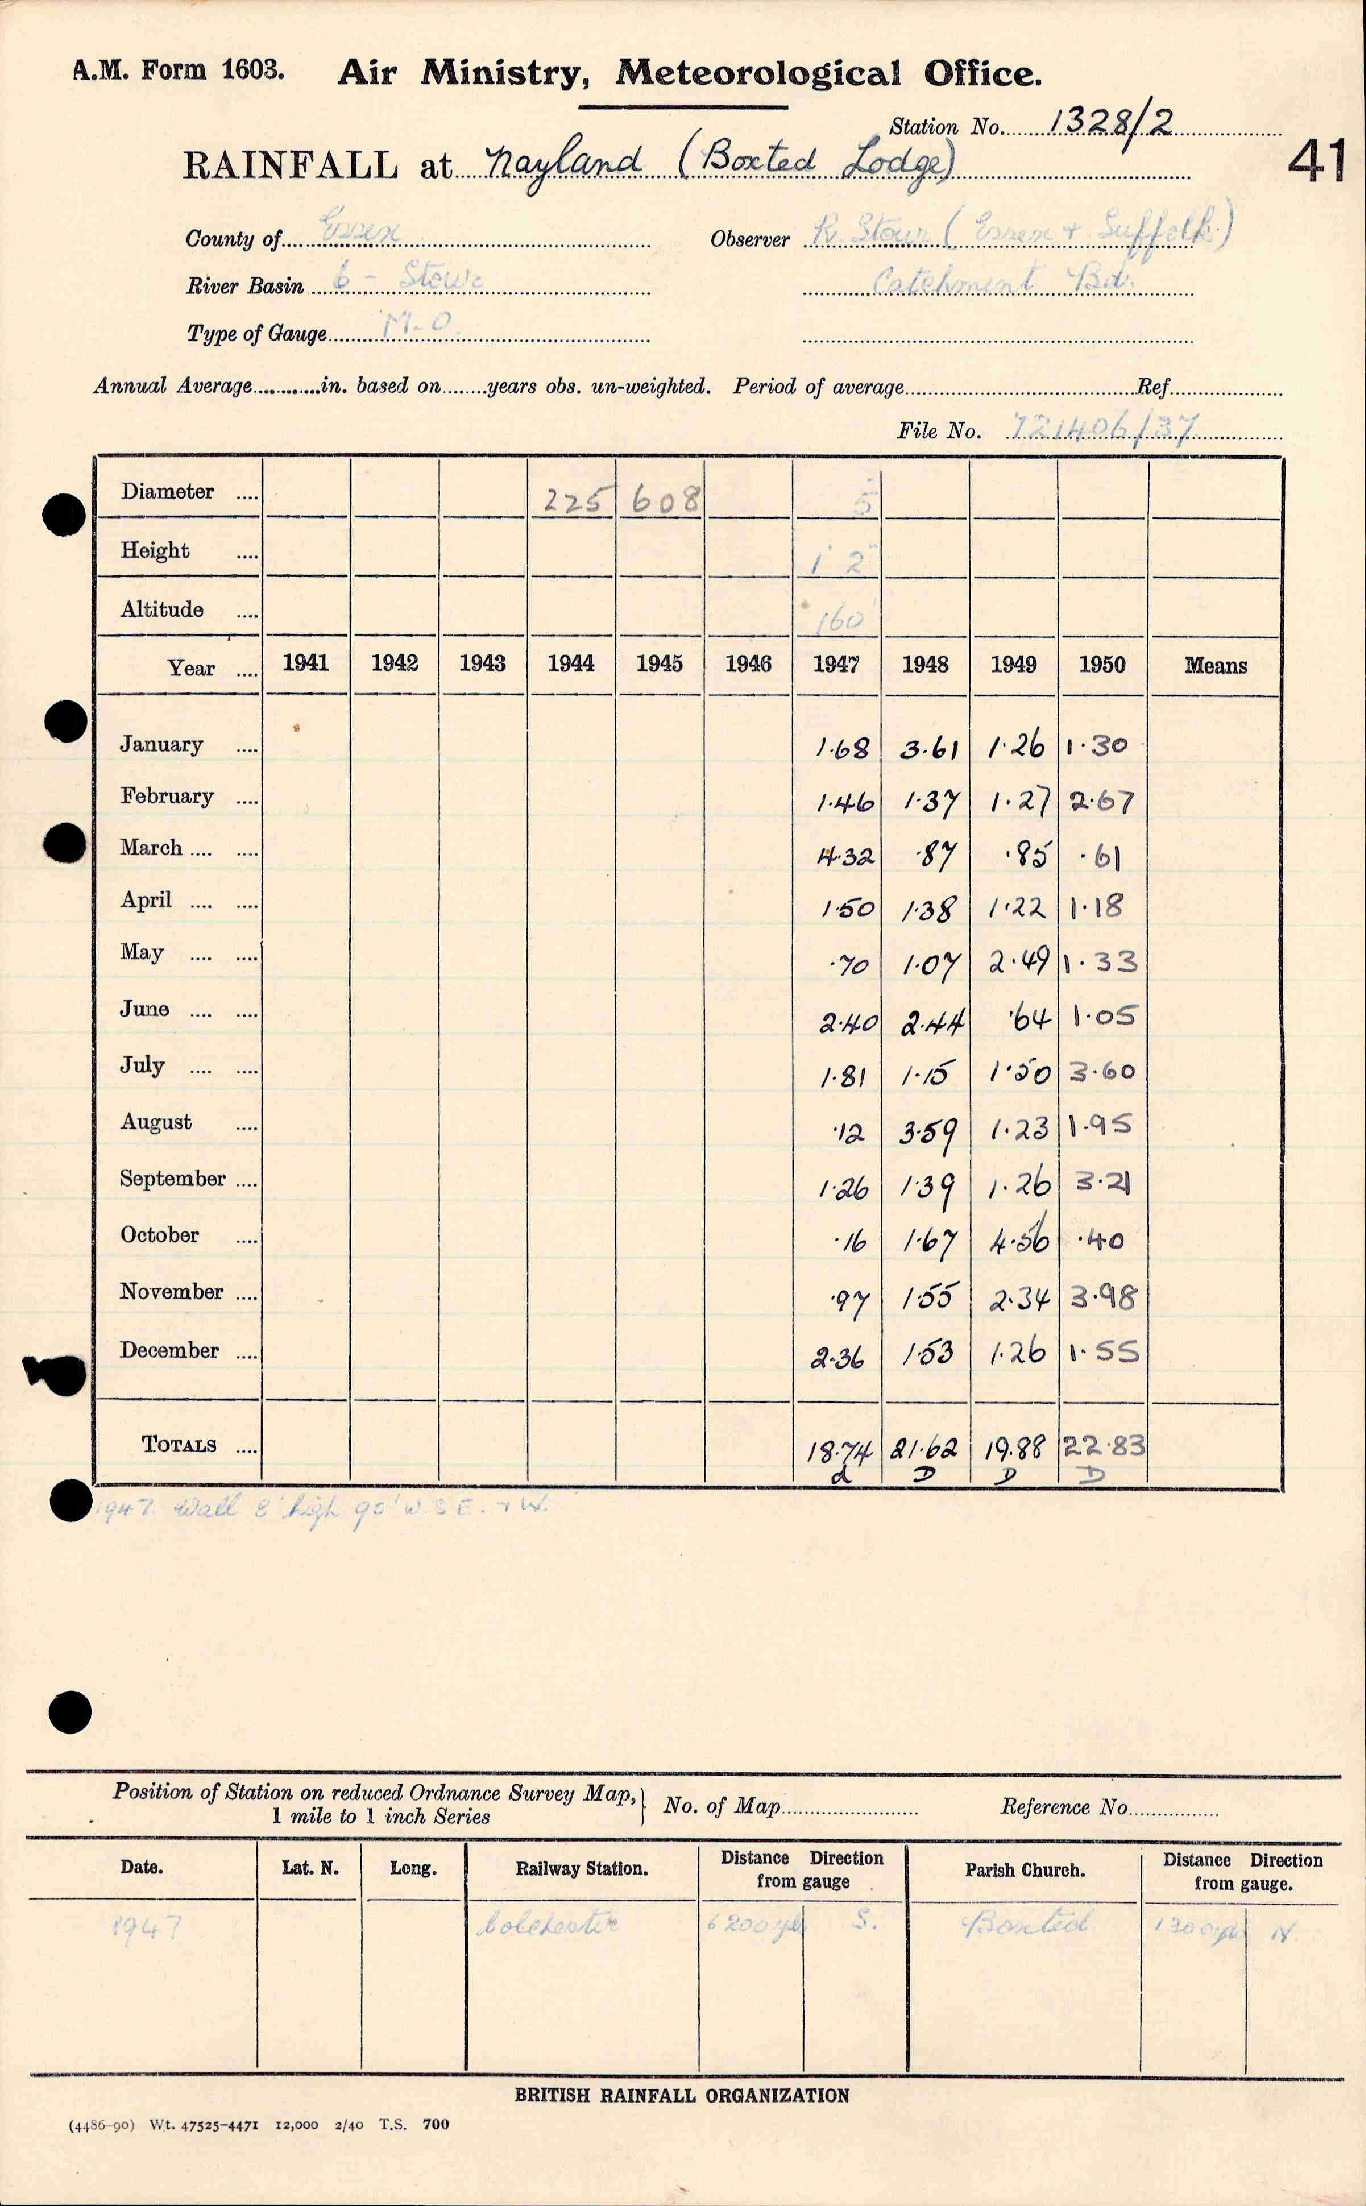 A.M. Form 1603. Air Ministry, Meteorological Office.
Station No. 1328/2
41
RAINFALL at Nayland (Boxted Lodge)
County of Essex Observer R. Stour (Essex + Suffolk)
River Basin 6 - Stour Catchment Bd.
Type of Gauge M.O.
Annual Average in. based on years obs. un-weighted. Period of average Ref.
File No. 721406/37
Diameter .... 225 608 5
Height .... 1' 2"
Altitude .... 160'
Year .... 1941 1942 1943 1944 1945 1946 1947 1948 1949 1950 Means
January .... 1.68 3.61 1.26 1.30
February .... 1.46 1.37 1.27 2.67
March .... .... 4.32 .87 .85 .61
April .... .... 1.50 1.38 1.22 1.18
May .... .... .70 1.07 2.49 1.33
June .... .... 2.40 2.44 .64 1.05
July .... .... 1.81 1.15 1.50 3.60
August .... .12 3.59 1.23 1.95
September .... 1.26 1.39 1.26 3.21
October .... .16 1.67 4.56 .40
November .... .97 1.55 2.34 3.98
December .... 2.36 1.53 1.26 1.55
TOTALS .... 18.74 21.62 19.88 22.83
d D D D
1947. Wall 8' high 90' W.S E. + W.
Position of Station on reduced Ordnance Survey Map,} No. of Map Reference No.
1 mile to 1 inch Series
Date. Lat. N. Long. Railway Station. Distance Direction from gauge Parish Church. Distance Direction from gauge.
1947 Colchester 6200 yds S. Boxted 1300 yds N
BRITISH RAINFALL ORGANIZATION
(4486-90) Wt. 47525-4471 12,000 2/40 T.S. 700